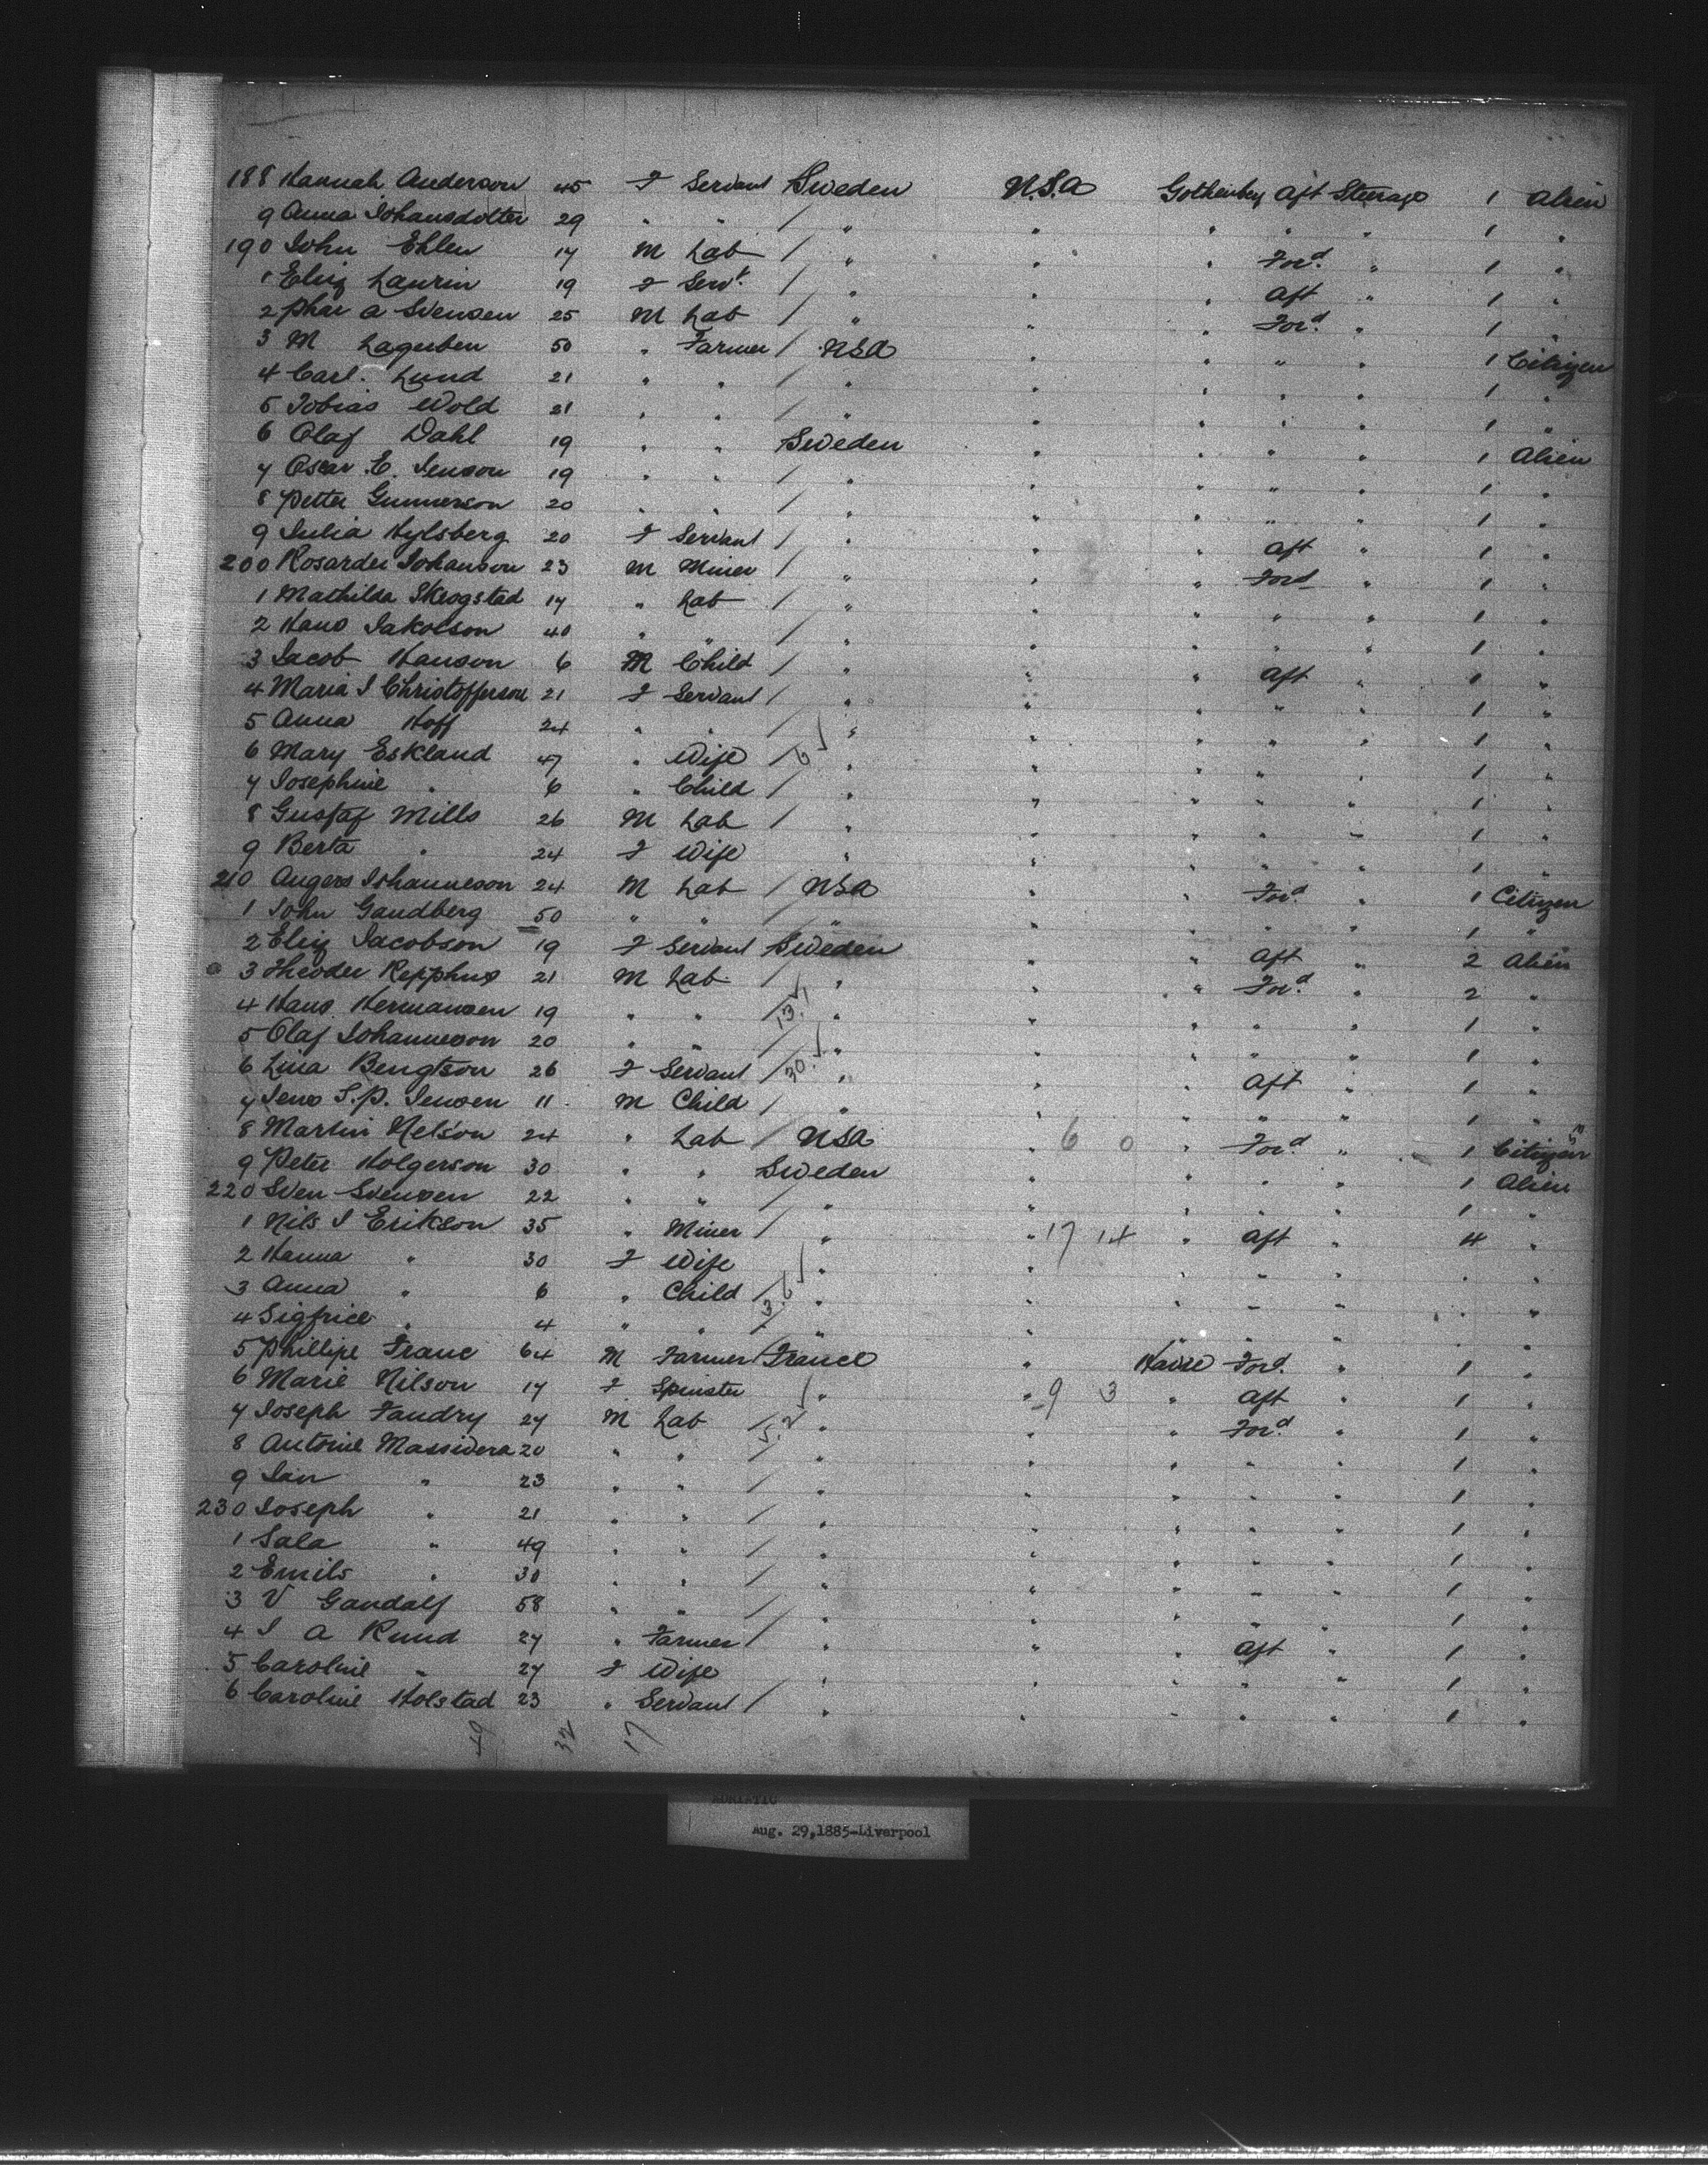 188 Hannah Anderson 45 F Servant Sweden U.S.A Gothenberg Aft Steerage 1 Alien
9 Anna Johansdotter 29 " " / " " " " " 1 "
190 John Ehlen 17 M Lab / " " " Ford " 1 "
1 Eliz Laurin 19 F Servt / " " " Aft " 1 "
2 Phar A Svensen 25 M Lab / " " " Ford " 1 "
3 M Laguben 50 " Farmer / USA " " " " 1 Citizen
4 Carl Lund 21 " " / " " " " " 1 "
5 Tobias Wold 21 " " / " " " " " 1 "
6 Olaf Dahl 19 " " Sweden " " " " 1 Alien
7 Oscar E. Jenson 19 " " / " " " " " 1 "
8 Petter Gunnerson 20 " " / " " " " " 1 "
9 Julia Hylsberg 20 F Servant / " " " Aft " 1 "
200 Rosarder Johanson 23 M Miner / " " " Ford " 1 "
1 Mathilda Skrogstad 17 " Lab / " " " " " 1 "
2 Hans Jakobson 40 " " / " " " " " 1 "
3 Jacob Hanson 6 M Child / " " " Aft " 1 "
4 Maria J Christofferson 21 F Servant / " " " " " 1 "
5 Anna Hoff 24 " " / " " " " " 1 "
6 Mary Eskland 47 " Wife / 6 " " " " " 1 "
7 Josephine " 6 " Child / " " " " " 1 "
8 Gustaf Mills 26 M Lab / " " " " " 1 "
9 Berta " 24 F Wife " " " " " 1 "
210 Angers Johanneson 24 M Lab / USA " " Ford " 1 Citizen
1 John Gandberg 50 " " / " " " " " 1 "
2 Eliz Jacobson 19 F Servant Sweden " " Aft " 2 Alien
3 Theoder Repphus 21 M Lab / " " " Ford " 2 "
4 Hans Hermansen 19 " " / 13.1 " " " " " 1 "
5 Olaf Johanneson 20 " " / " " " " " 1 "
6 Lina Bengtson 26 F Servant / 30. " " " Aft " 1 "
7 Jens S.P. Jensen 11 M Child / " " " " " 1 "
8 Martin Nelson 24 " Lab / USA " 6 0 " Ford " 1 Citizen
9 Peter Holgerson 30 " " Sweden " " " " 1 Alien
220 Sven Svensen 22 " " / " " " " " 1 "
1 Nils J Erikson 35 " Miner / " " 17 14 " Aft " 4 "
2 Hanna " 30 F Wife " " " " " " "
3 Anna " 6 " Child / 3.6 " " " " " "
4 Sigfried " 4 " " / " " " " " " "
5 Phillipe Franc 64 M Farmer / France " Havre Ford " 1 "
6 Marie Nilson 17 F Spinster / " " 9 3 " Aft " 1 "
7 Joseph Faudry 27 M Lab / 5.2 " " Ford " 1 "
8 Antoine Massidera 20 " " / " " " " " 1 "
9 Jan " 23 " " / " " " " " 1 "
230 Joseph " 21 " " / " " " " " 1 "
1 Sala " 49 " " / " " " " " 1 "
2 Emils " 30 " " / " " " " " 1 "
3 V Gandalf 58 " " / " " " " " 1 "
4 J A Rund 27 " Farmer / " " " Aft " 1 "
5 Caroline " 27 F Wife " " " " " 1 "
6 Caroline Holstad 23 " Servant / " " " " " 1 "
49 32 17
ADRIATIC
Aug. 29,1885-Liverpool